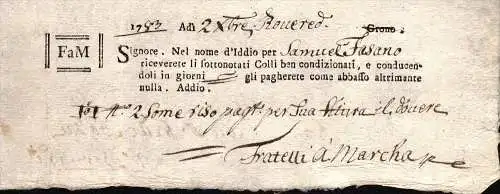 1753 Adi 2 Xbre Rovered. Grono.
FaM Signore. Nel nome d'Iddio per Samuel Fasano
riceverete li sottonotati Colli ben condizionati, e conducen-
doli in giorni gli pagherete come abbasso altrimente
nulla. Addio.
N.o 2 Some riso pag.t per sua il dovere
Fratelli a Marcha